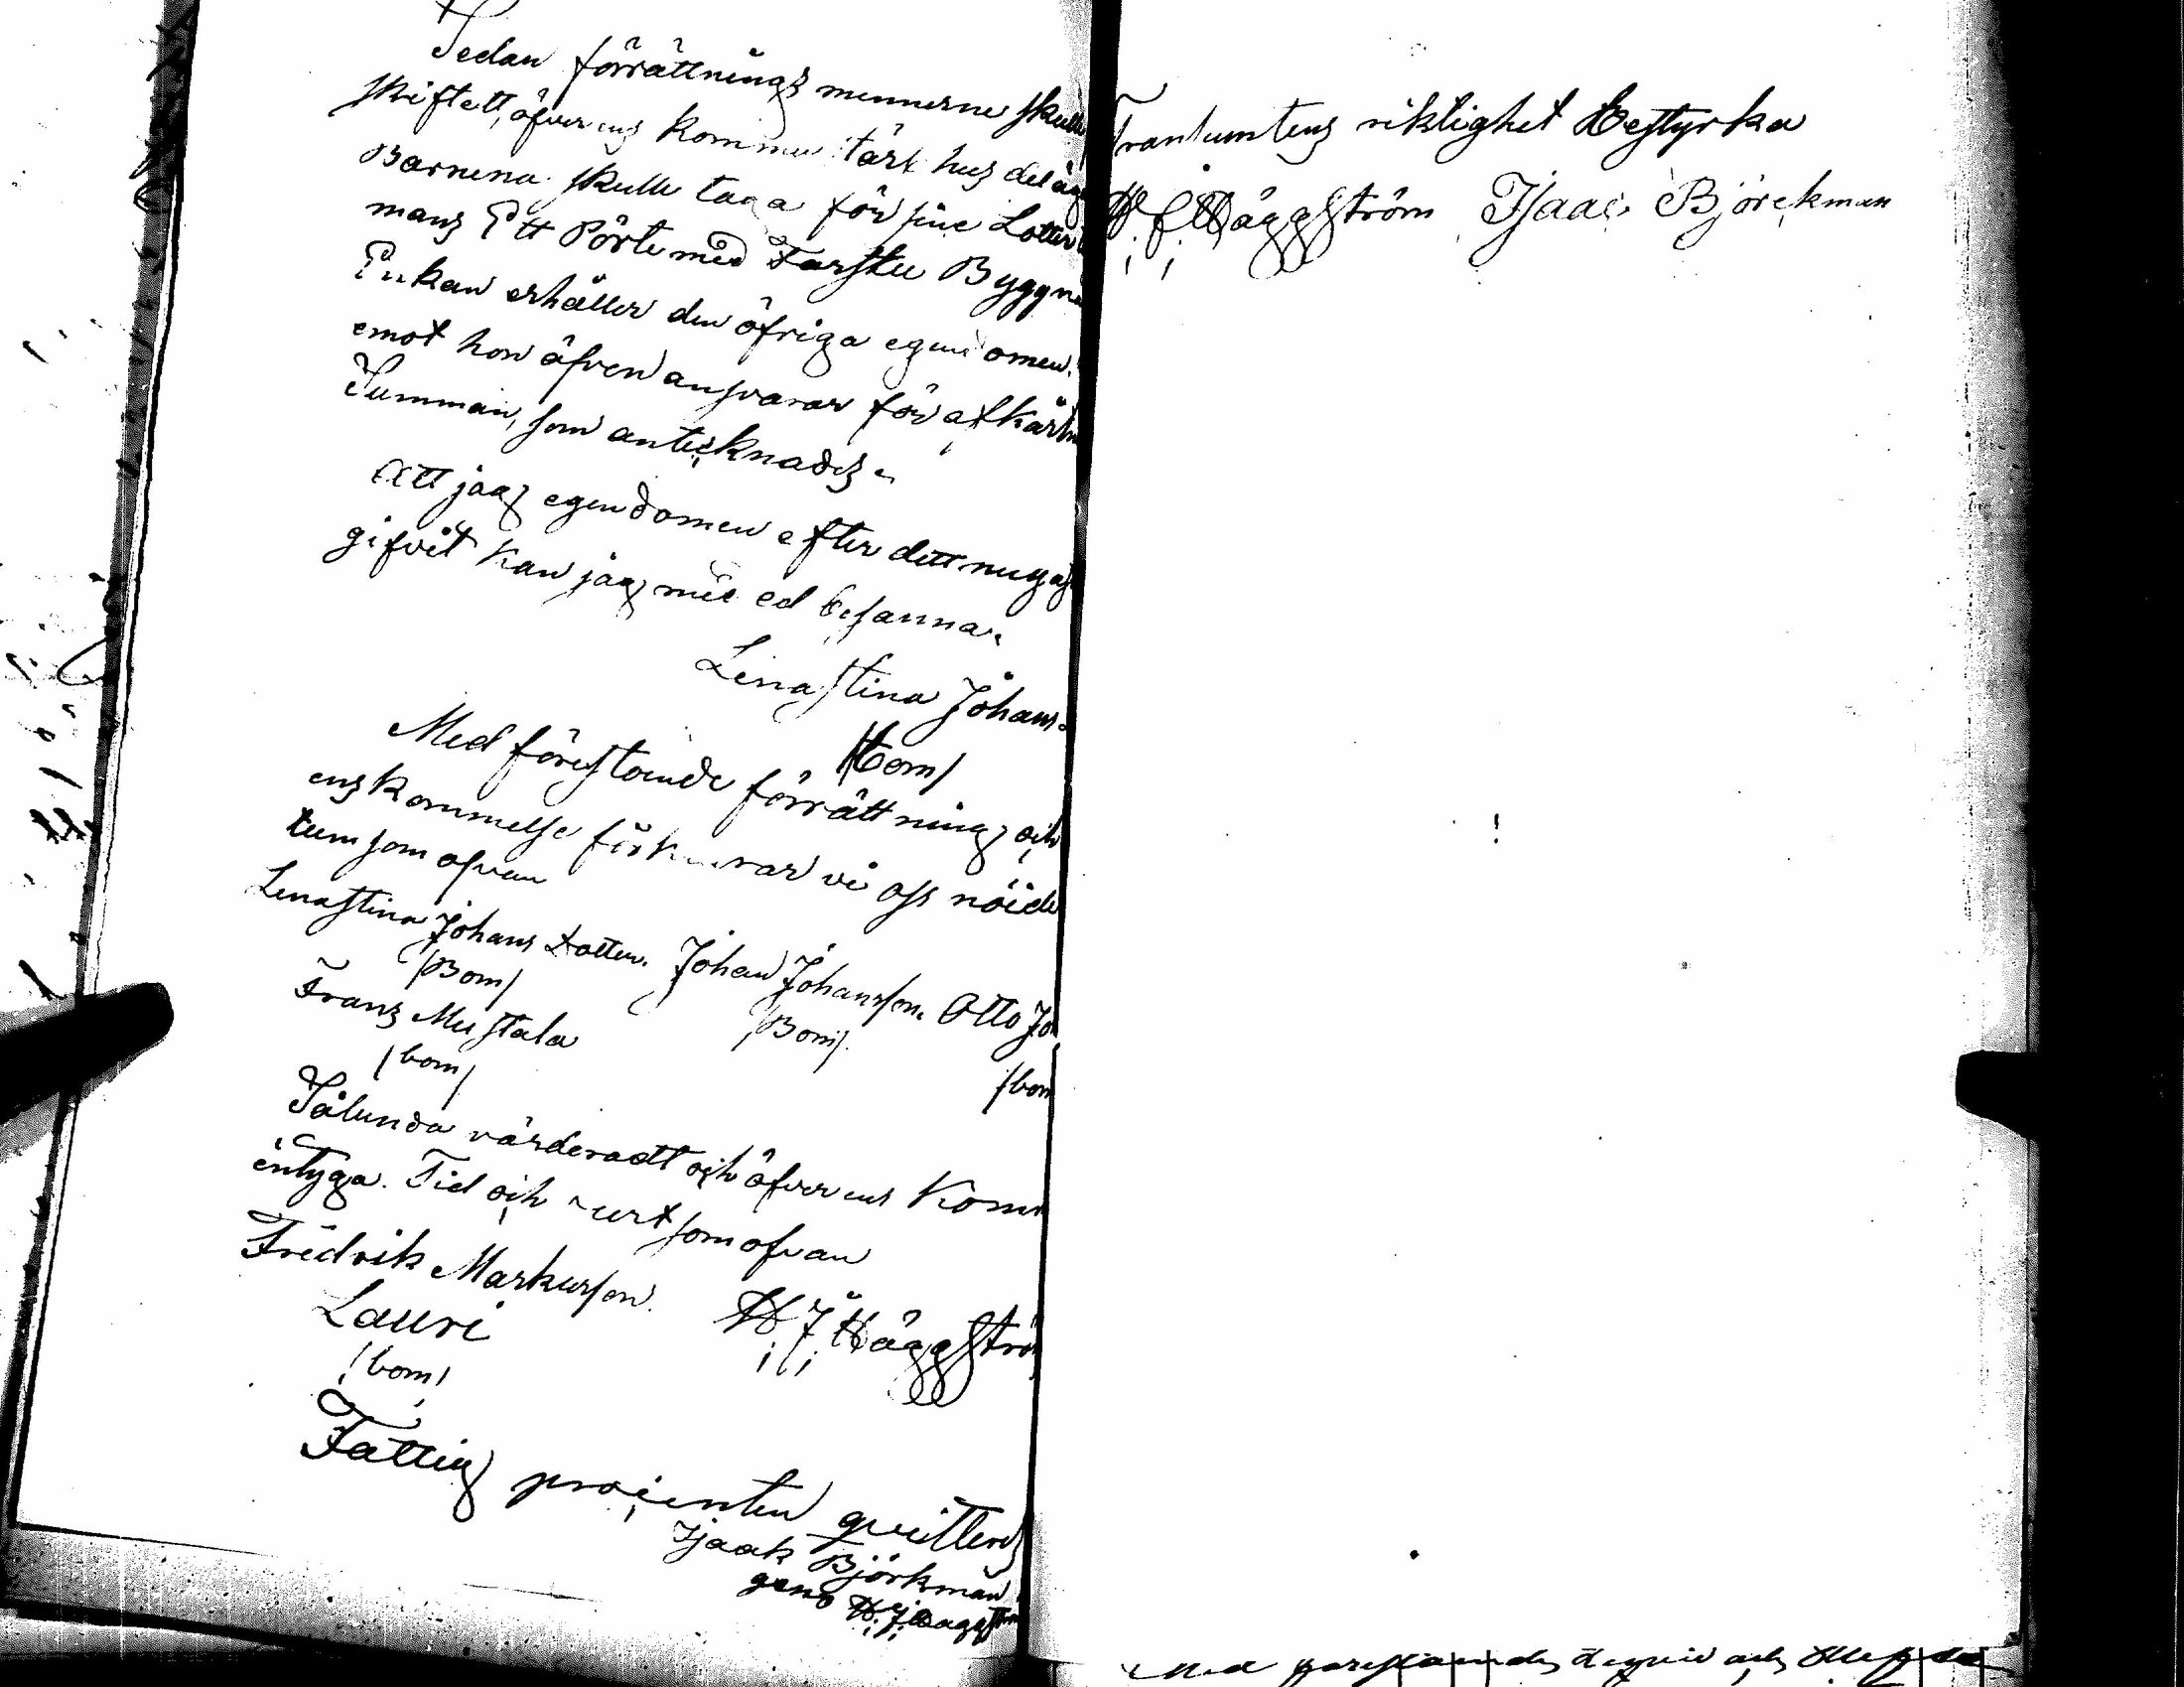 Sedan förrättnings mennerne skulle
skiftett, öfverens kommu tärt hus deläg
Barnena skulle taga för sine Lotter
mans Ett Pörte med Farstu Byggn
Enkan erhåller den öfriga egendomen.
emot hon äfven ansvarar för afkärtn
Summan, som antecknades
Att jag egendomen efter dett nugast
gifvit kan jag med ed besanna.
Lenastina Johans
/bom/
Med förestående förrättning och
enskommelse förklarar vi oss nöide
tum som ofvan
Lenastina Johans dotter. Johan Johansson. Otto Jo
/Bom/ /Bom/. /bom
Frans Mustala
/bom/
Sålunda värderadt och öfverens Kom
intyga. Tid och urt som ofvan
Fredrik Markusson. H. J. Häggströ
Lauri
/bom/
Fattig procenten qvitteras
Isaak Björkman
geno H. J. Häggström
Transumtens riktighet bestyrka
H. J. Häggström Isaac Björckman